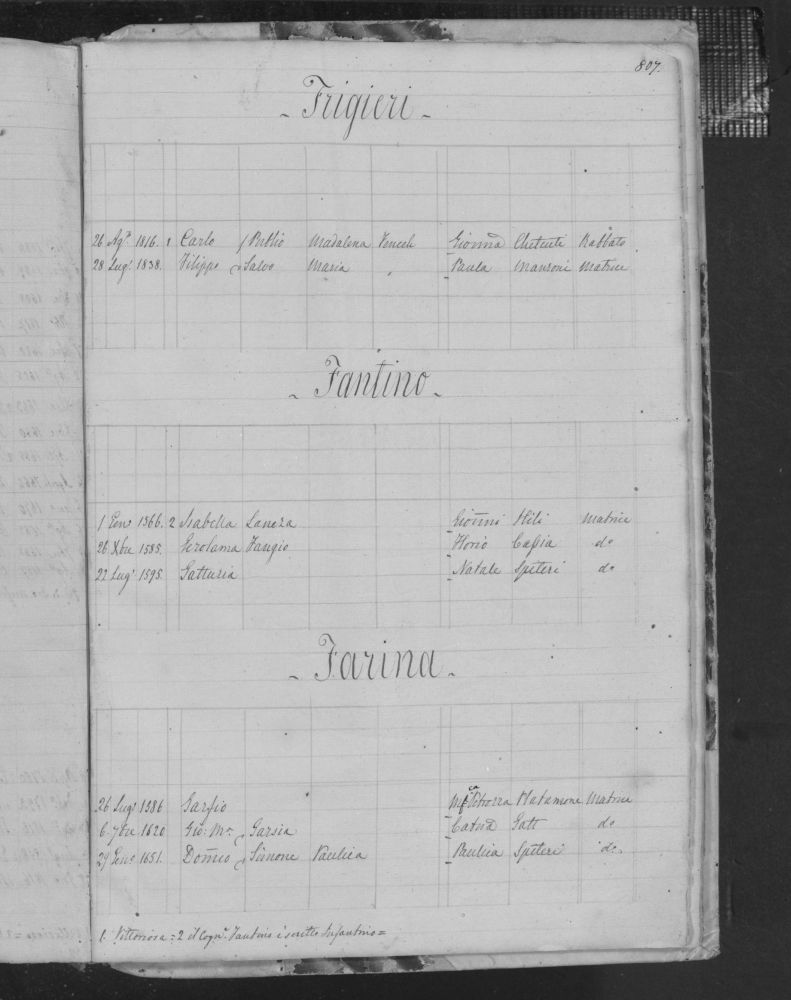 807.
- Frigieri -
26 Agto 1816. 1 Carlo / Publio Madalena Vencele Gionna Chetcuti Rabbato
28 Lugo 1838. Filippo Salvo Maria Paula Manroni Matrice
- Fantino -
1 Geno 1566. 2 Isabella Lancza Gionni Hili Matrice
26 Xbre 1585. Gerolama Faugio Florio Cassia do
22 Lugo 1595. Gatturia Natale Spiteri do
- Farina -
26 Lugo 1586 Garsio Platamone Matrice
6. 7bre 1620 Gio: Ma Garsia Catna Gatt do
29 Geno 1651. Domco Simone Paulica Paulica Spiteri do
1. Vittoriosa = 2 il Cogne Fantino è scritto Infantino =